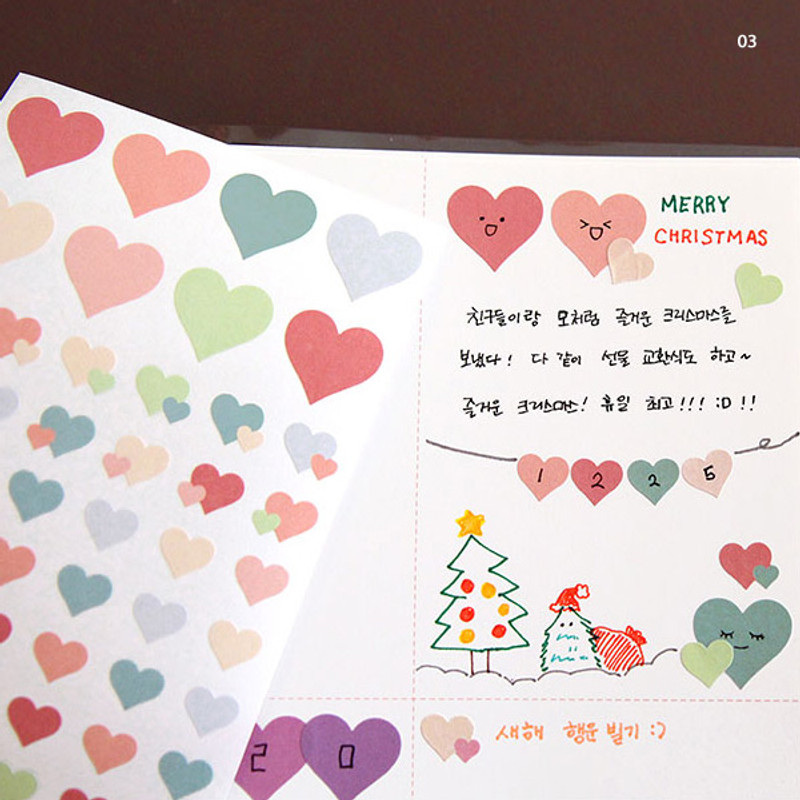 03
MERRY
CHRISTMAS
친구들이랑 모처럼 즐거운 크리스마스를
보냈다! 다 같이 선물 교환식도 하고~
즐거운 크리스마스! 휴일 최고!!! :D !!
1 2 2 5
2 0
새해 행운 빌기 :)